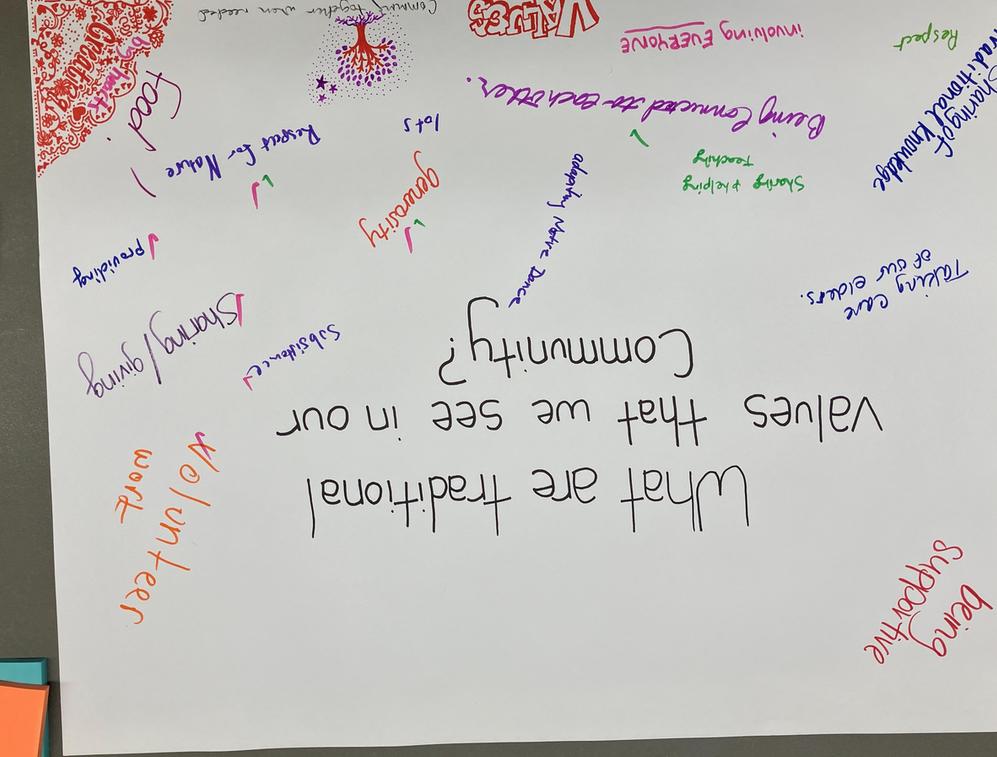 What are traditional
values that we see in our
Community?
being
supportive
Volunteer
work
Taking care
of our elders.
Subsistence
Sharing/giving
providing
adapting Native Dance
generosity
Sharing & helping
teaching
Respect for Nature
lots
Food!
Being Connected to each other.
Sharing of
traditional knowledge
Respect
involving EVERYONE
VALUES
Coming together when needed
big hearts
Creating